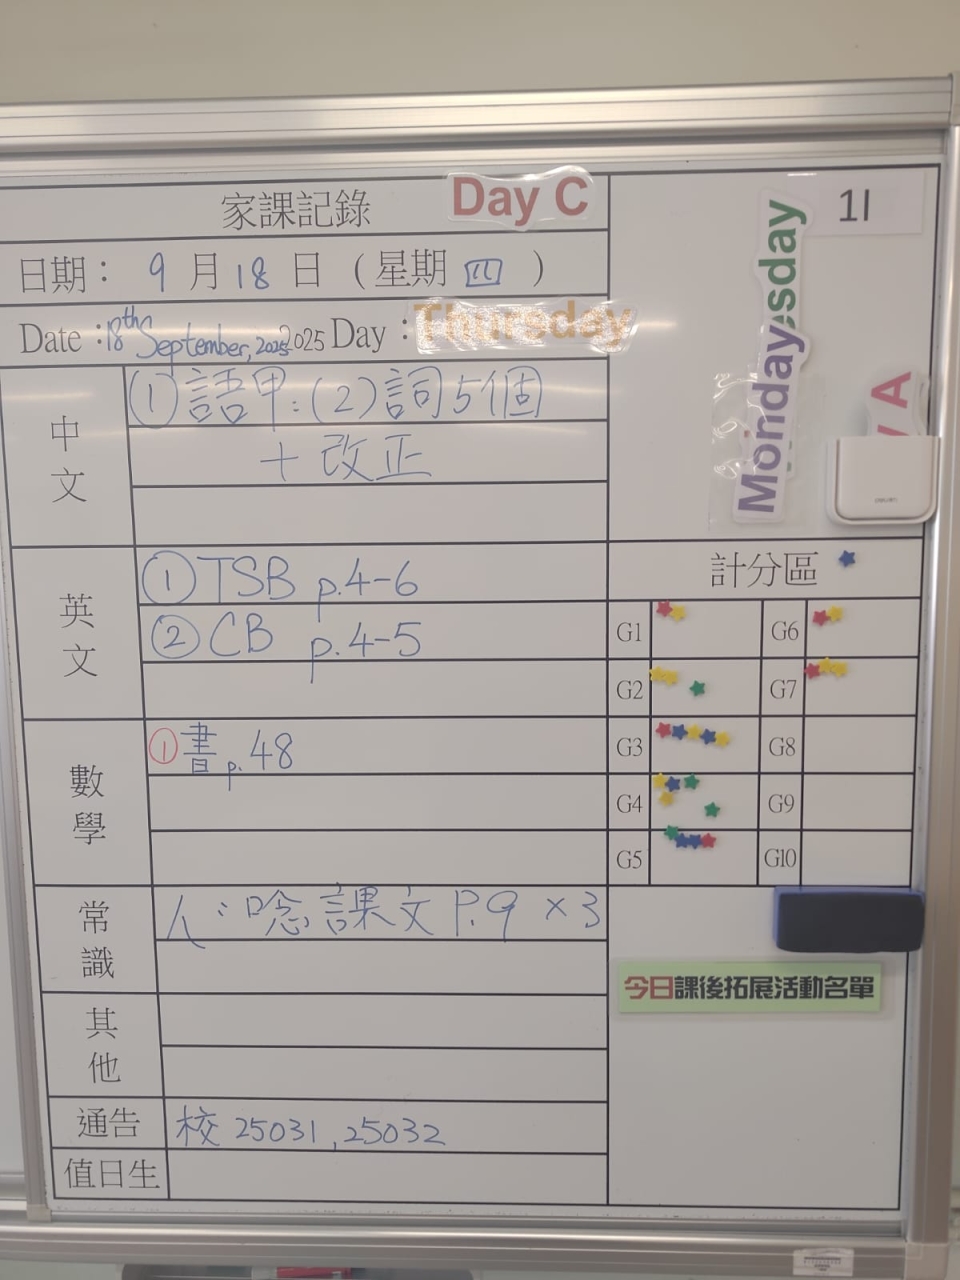 家課記錄 Day C
日期： 9 月 18 日 （星期 四 ）
Date : 18th September, 2025 2025 Day : Thursday
中文
① 語甲：(2) 詞5個
+ 改正
英文
① TSB p.4-6
② CB p.4-5
數學
① 書 p.48
常識
人：唸課文 P.9 × 3
其他
通告
校 25031, 25032
值日生
1I
sday
Monday
y A
deli
計分區
G1 G6
G2 G7
G3 G8
G4 G9
G5 G10
今日課後拓展活動名單